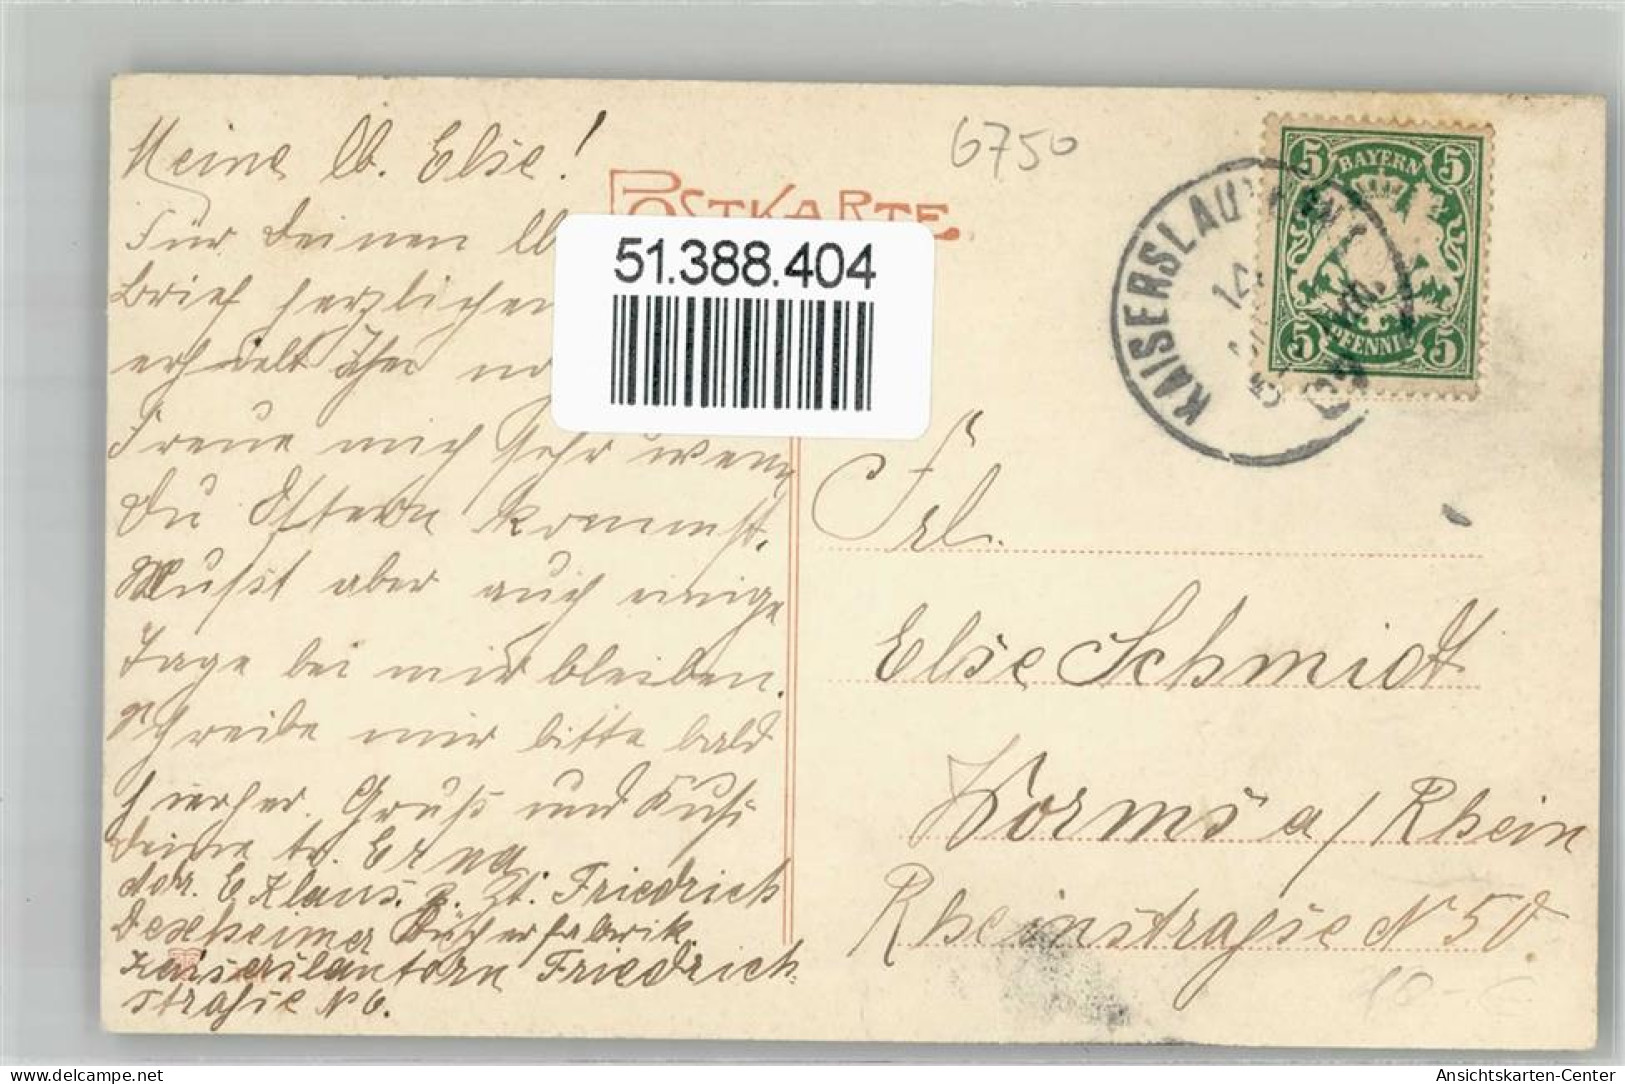 Meine lb. Else!
6750
POSTKARTE
Für Deinen lb
Brief herzlichen
erhielt ihn
Freue mich sehr wenn
Du Ostern kommst.
Mußt aber auch einige
Tage bei mir bleiben.
Schreibe mir bitte bald
hierher. Gruß und Kuß
Deine tr. Erna
E. Klaus. z. Zt. Friedrich
Kaiserslautern Friedrich-
straße No 6.
51.388.404
KAISERSLAUTERN
BAYERN
5 5
PFENNIG
5 5
Frl.
Else Schmidt
Worms a/Rhein
Rheinstraße No 50.
delcampe.net
Ansichtskarten-Center